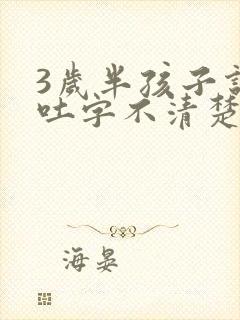 3歲半孩子
吐字不清楚
海晏